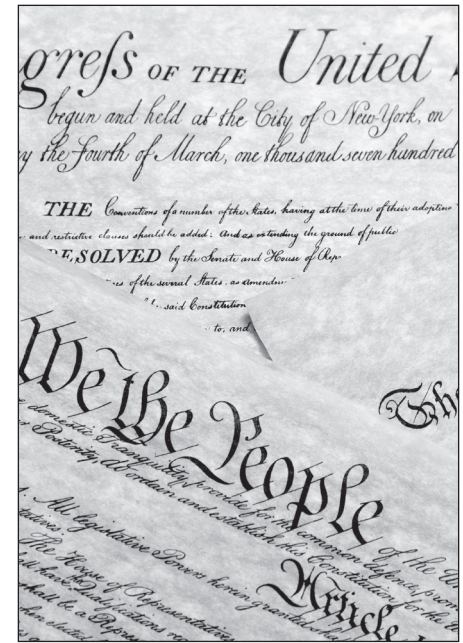 greſs OF THE United
begun and held at the City of New-York, on
the Fourth of March, one thousand seven hundred
THE Conventions of a number of the States, having at the time of their adoption
and restrictive clauses should be added: And as extending the ground of public
RESOLVED by the Senate and House of Rep
of the several States, as amendm
said Constitution
to, and
The
We the People
of the U
domestic Tranquility, provide for the common defence, pro
Posterity, do ordain and establish this Constitution for the U
Article
All legislative Powers herein granted
The House of Representatives
shall have the Qualifications
shall be a Repres